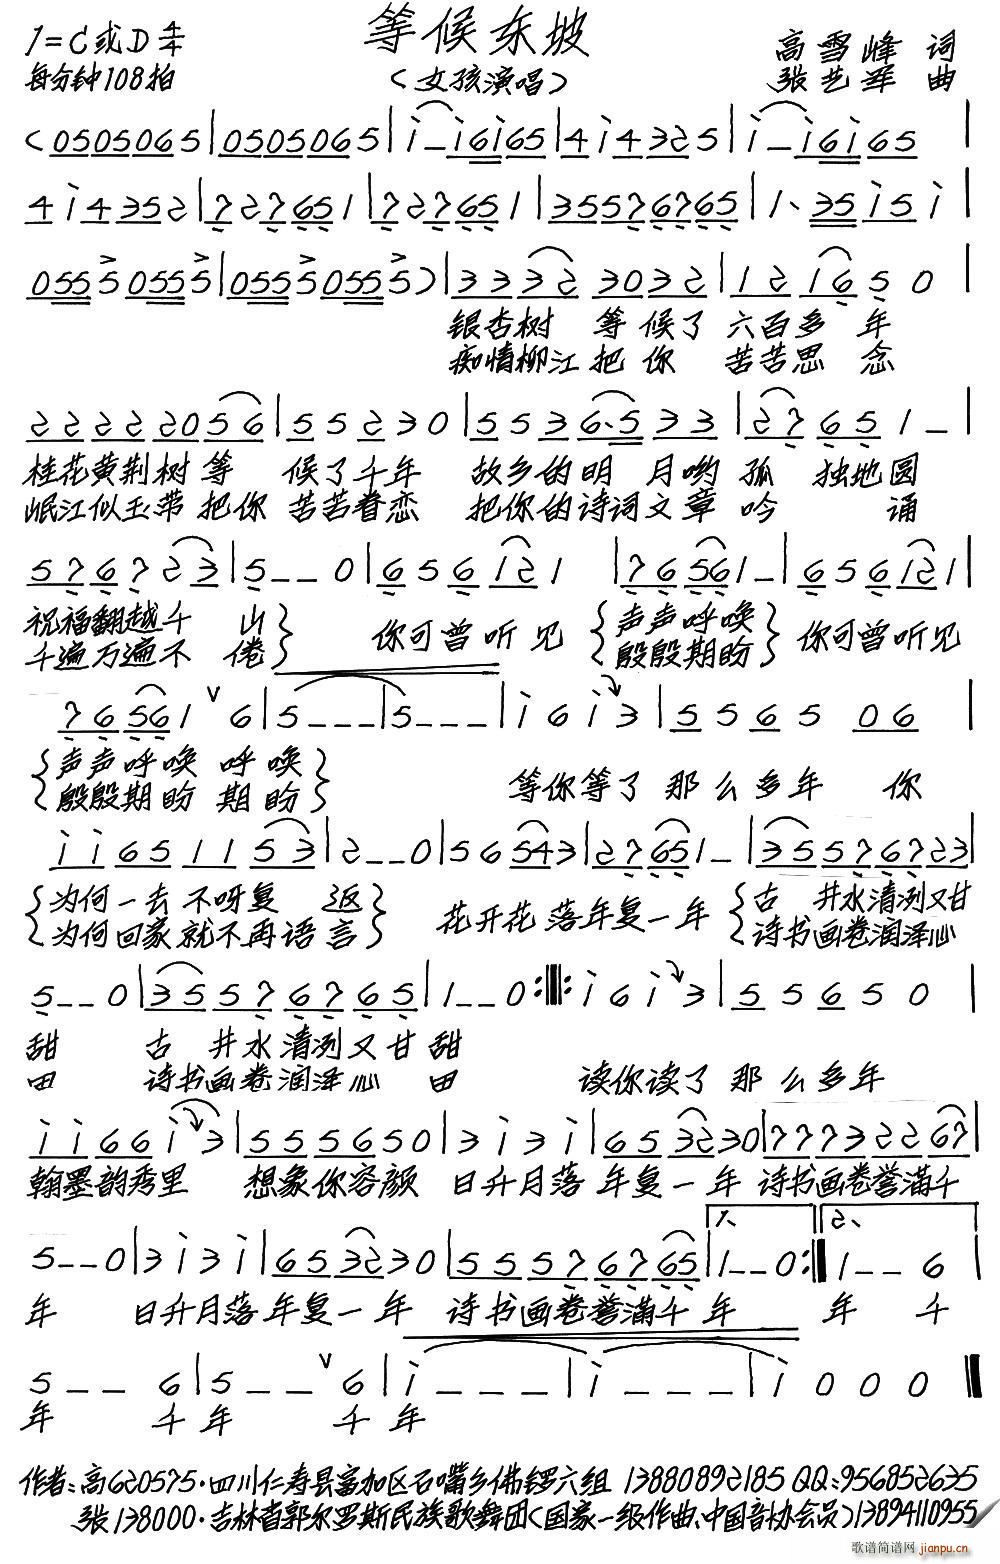 等候东坡
1=C或D 4/4
高雪峰 词
每分钟108拍
(女孩演唱)
张艺军 曲
(0505065|0505065|i－i6i65|4i4325|i－i6i65|
4i4352|727651|727651|35576765|1、35i5i|
05550555|05550555)|3332 3032|121650
银杏树 等候了 六百多 年
痴情柳江 把你 苦苦思 念
22222056|55230|5536.533|27651－
桂花黄荆树等 候了千年 故乡的明 月哟孤 独地圆
岷江似玉带把你 苦苦眷恋 把你的诗词文章 吟 诵
576723|5－－0|656121 |76561－|656121|
祝福翻越千 山 你可曾听见 声声呼唤 你可曾听见
千遍万遍不 倦 殷殷期盼
76561 V 6|5－－－|5－－－|i6i3|5565 06|
声声呼唤 呼唤
殷殷期盼 期盼 等你等了 那么多年 你
ii651153|2－－0|56543|27651－|35576723|
为何一去不呀复 返 花开花落年复一年 古 井水清洌又甘
为何回家就不再语言 诗书画卷润泽心
5－－0|35576765|1－－0:‖:i6i3|55650|
甜 古 井水清洌又甘甜
田 诗书画卷润泽心 田 读你读了 那么多年
ii66i3|555650|3i3i|653230|77732267
翰墨韵秀里 想象你容颜 日升月落 年复一年 诗书画卷誉满千
1、 2、
5－－0|3i3i|653230|55576765|1－－0:‖1－－6
年 日升月落年复一年 诗书画卷誉满千年 年 千
5－－6|5－－－V6|i－－－|i－－－|i000‖
年 千年 千年
作者:高620575·四川仁寿县富加区石嘴乡佛锣六组 13880892185 QQ:956852635
张138000·吉林省郭尔罗斯民族歌舞团(国家一级作曲、中国音协会员)13894110955
歌谱简谱网
jianpu.cn